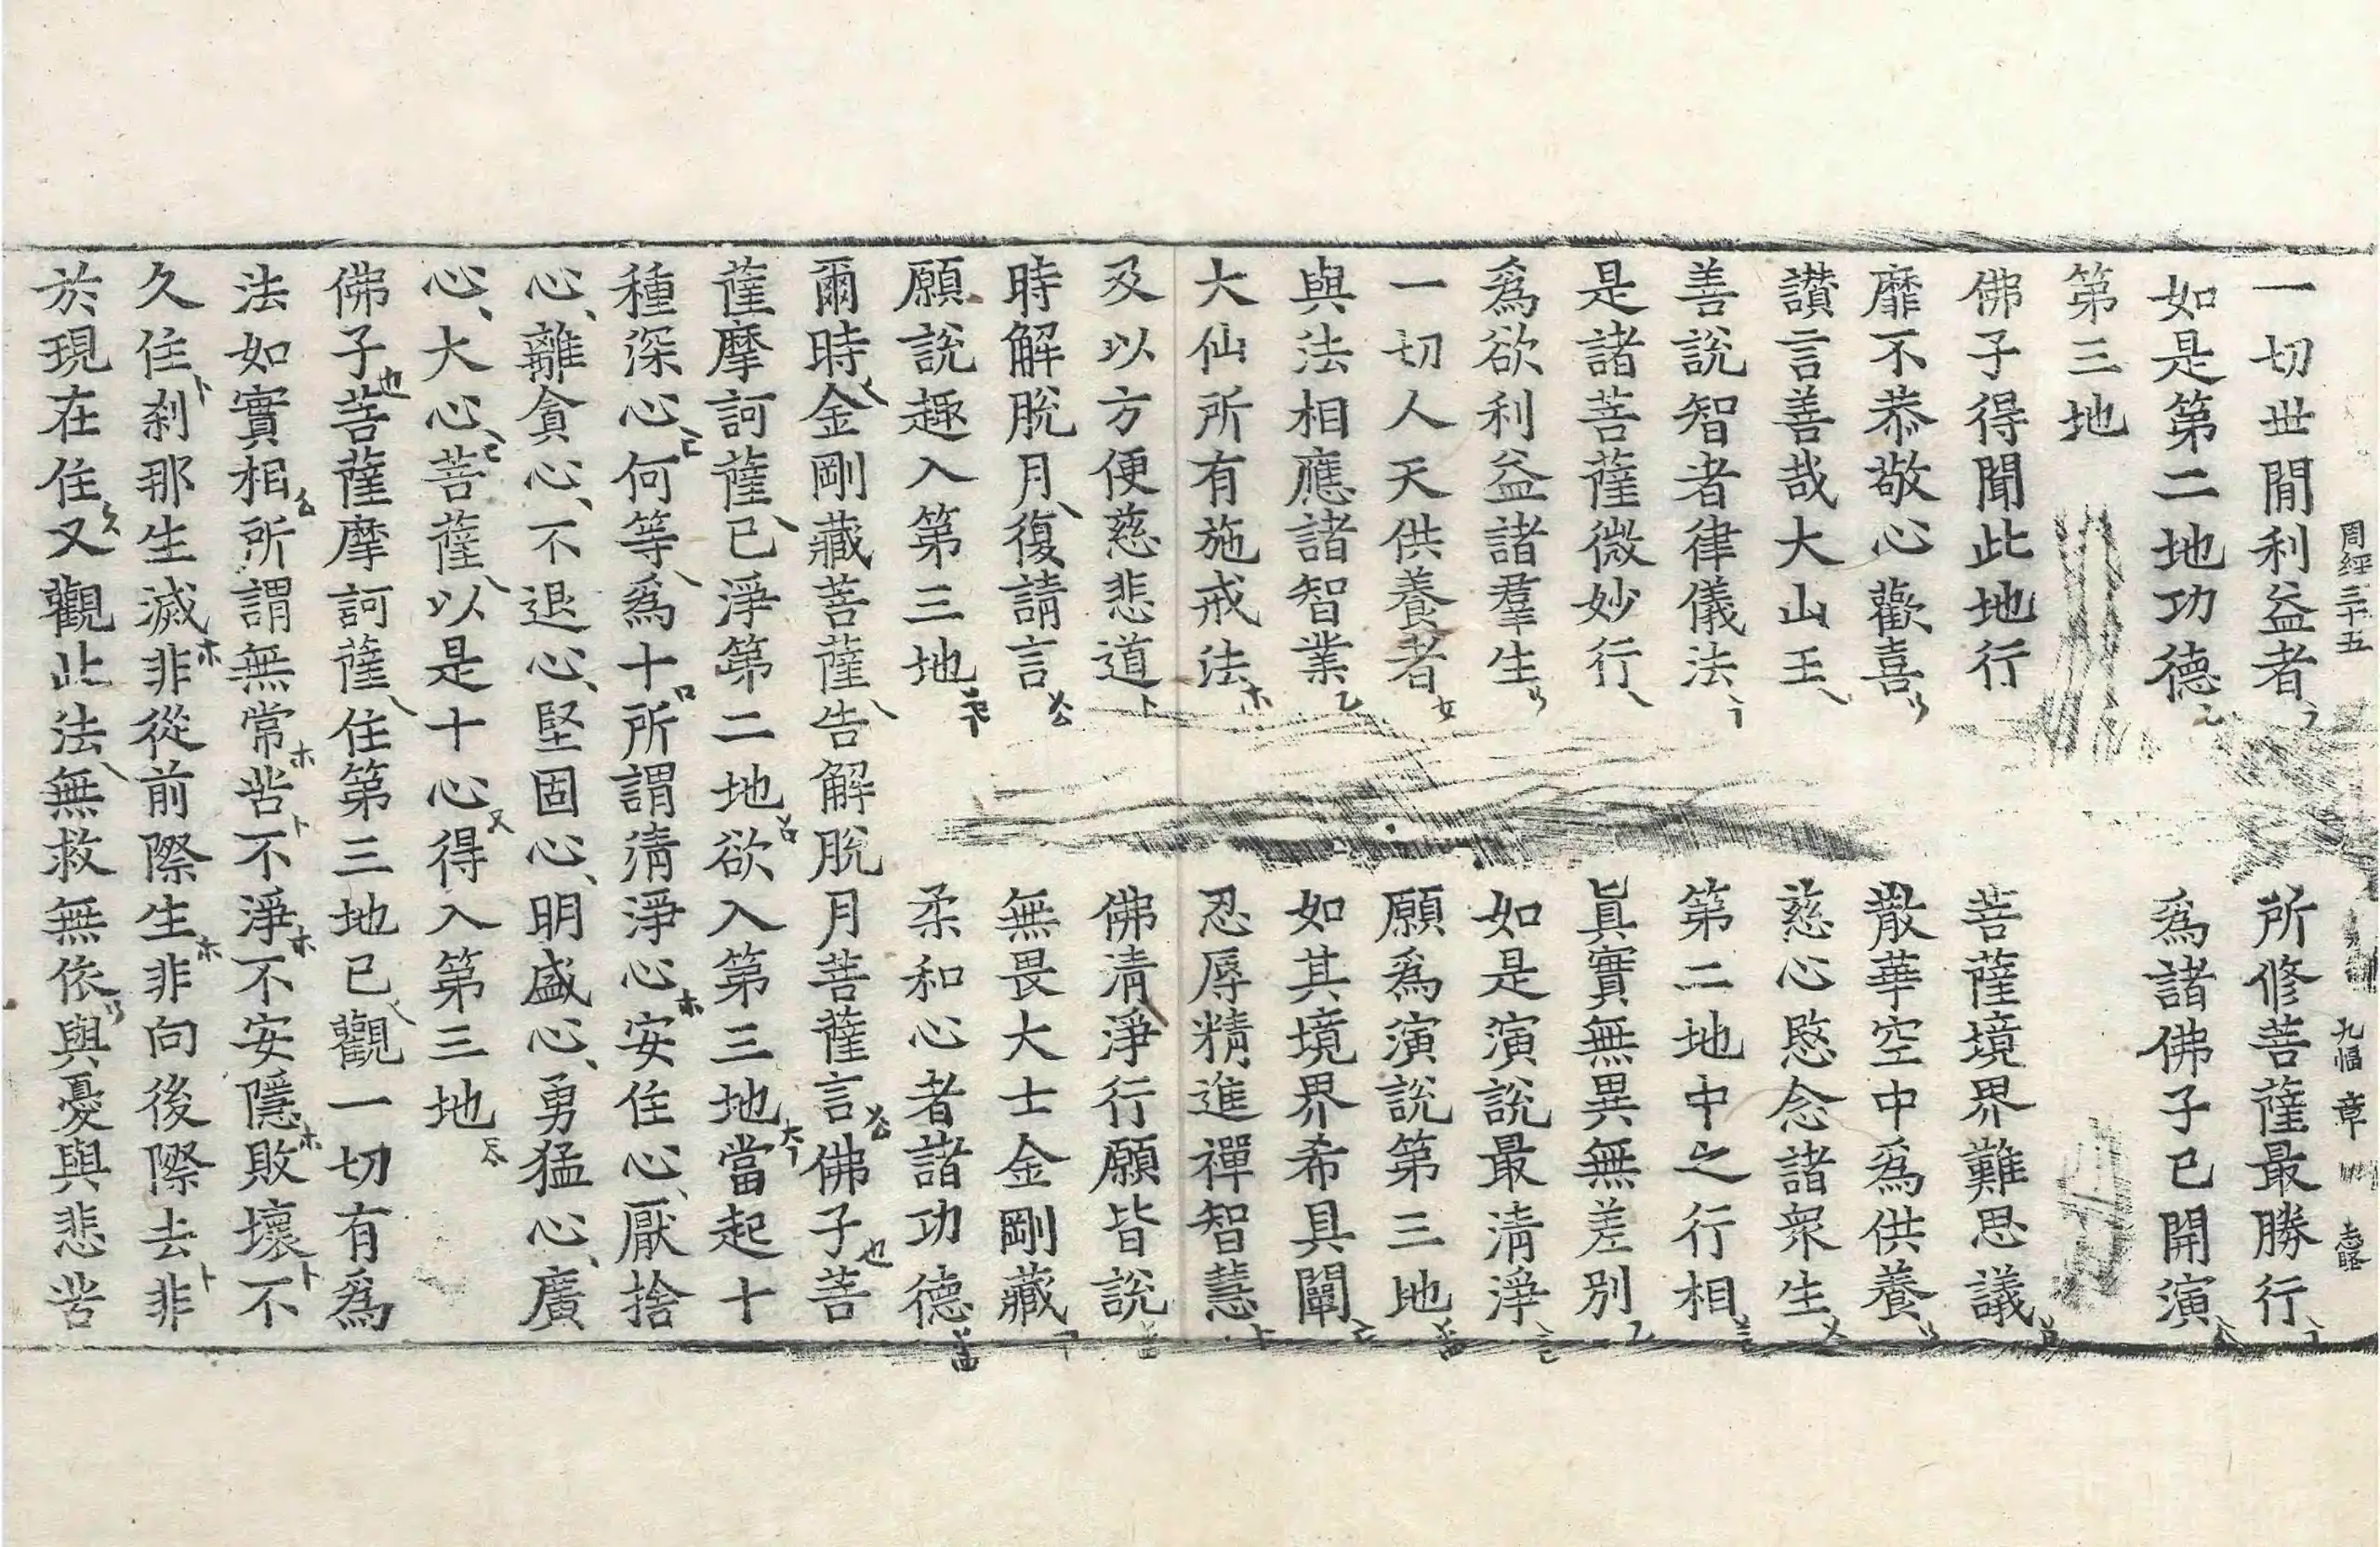 周經三十五 九幅 章
一切世閒利益者 所修菩薩最勝行
如是第二地功德 爲諸佛子已開演
第三地
佛子得聞此地行 菩薩境界難思議
靡不恭敬心歡喜 散華空中爲供養
讃言善哉大山王 慈心愍念諸衆生
善說智者律儀法 第二地中之行相
是諸菩薩微妙行 眞實無異無差別
爲欲利益諸羣生 如是演說最清淨
一切人天供養者 願爲演說第三地
與法相應諸智業 如其境界希具闡
大仙所有施戒法 忍辱精進禪智慧
及以方便慈悲道 佛清淨行願皆說
時解脫月復請言 無畏大士金剛藏
願說趣入第三地 柔和心者諸功德
爾時金剛藏菩薩告解脫月菩薩言佛子菩
薩摩訶薩已淨第二地欲入第三地當起十
種深心何等爲十所謂清淨心安住心厭捨
心離貪心不退心堅固心明盛心勇猛心廣
心大心菩薩以是十心得入第三地
佛子菩薩摩訶薩住第三地已觀一切有爲
法如實相所謂無常苦不淨不安隱敗壞不
久住刹那生滅非從前際生非向後際去非
於現在住又觀此法無救無依與憂與悲苦